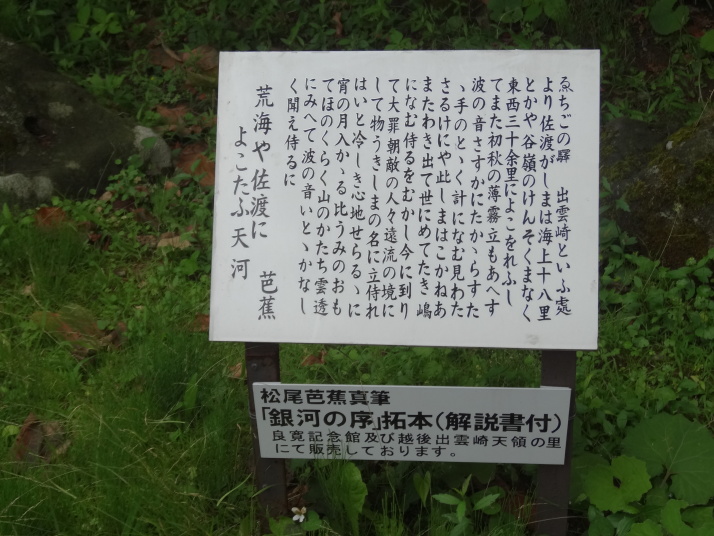 ゑちごの驛　出雲崎といふ處
より佐渡がしまは海上十八里
とかや谷嶺のけんそくまなく
東西三十余里によこをれふし
てまた初秋の薄霧立もあへす
波の音さすかにたかゝらすた
ゝ手のとゝく計になむ見わた
さるけにや此しまはこかねあ
またわき出て世にめてたき嶋
になむ侍るをむかし今に到り
て大罪朝敵の人々遠流の境に
して物うきしまの名に立侍れ
はいと冷しき心地せらるゝに
宵の月入かゝる比うみのおも
てほのくらく山のかたち雲透
にみへて波の音いとゝかなし
く聞え侍るに
芭蕉
荒海や佐渡に
よこたふ天河
松尾芭蕉真筆
「銀河の序」拓本(解説書付)
良寛記念館及び越後出雲崎天領の里
にて販売しております。